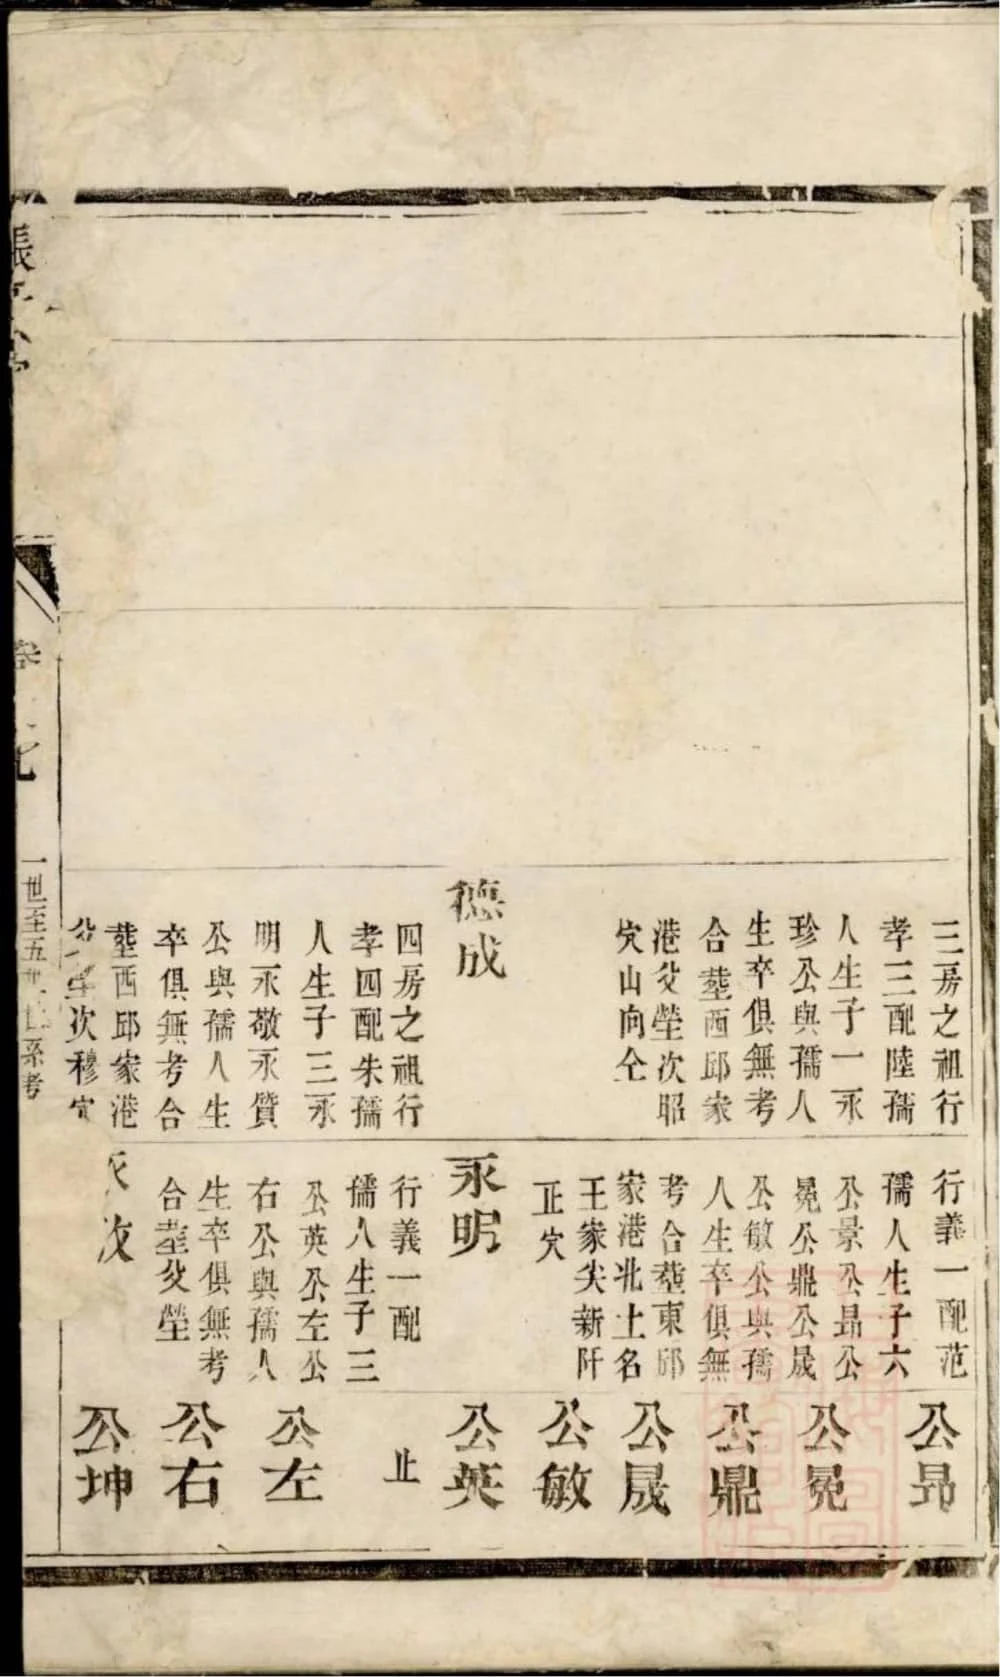 三房之祖行
孝三配陸孺
人生子一永
珍公與孺人
生卒俱無考
合塟西邱家
港父塋次昭
穴山向仝
德成
四房之祖行
孝四配朱孺
人生子三永
明永敬永賛
公與孺人生
卒俱無考合
塟西邱家港
父塋次穆穴
行義一配范
孺人生子六
公景公昻公
冕公鼎公晟
公敏公與孺
人生卒俱無
考合塟東邱
家港北土名
王家尖新阡
正穴
永明
行義一配
儒人生子三
公英公左公
右公與孺人
生卒俱無考
合塟父塋
公昻
公冕
公鼎
公晟
公敏
公英
止
公左
公右
公坤
張
卷 七
一世至五世世系考